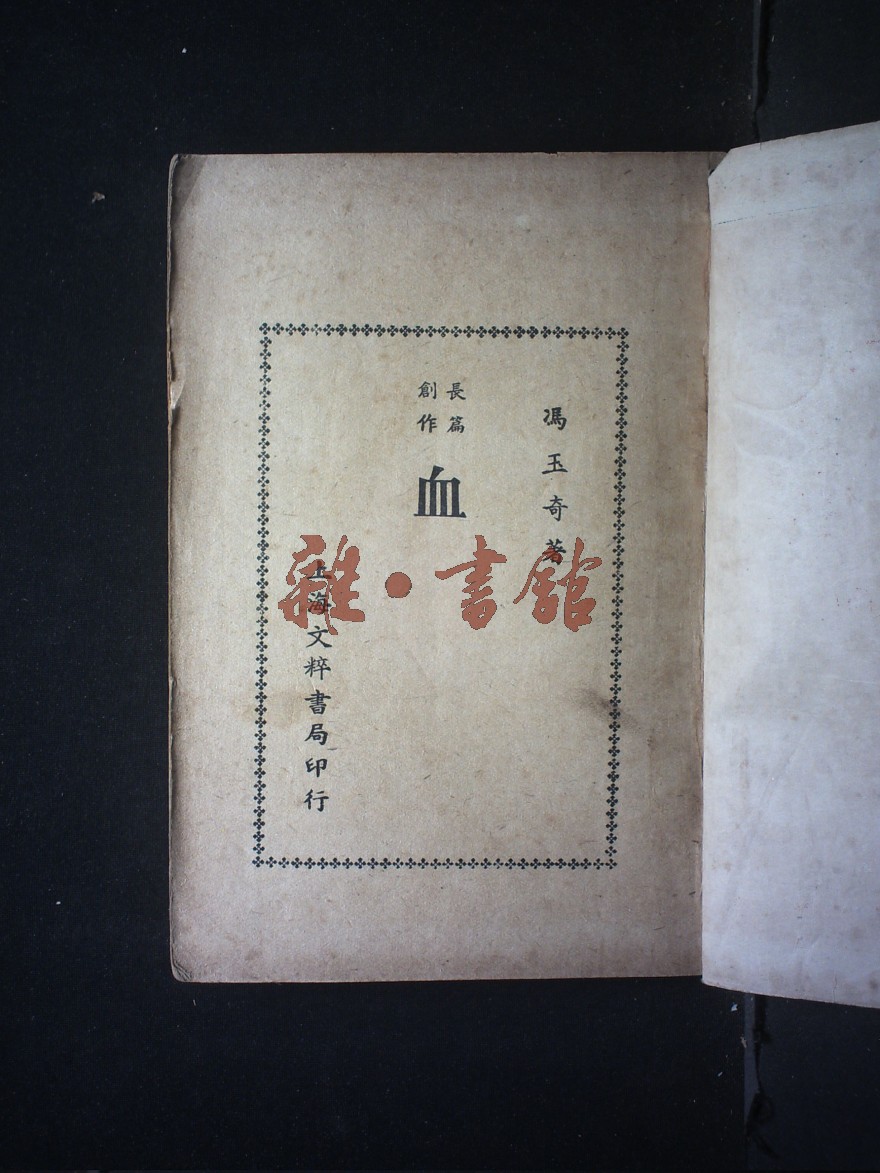 馮玉奇著
長篇
創作
血
上海文粹書局印行
雜·書館